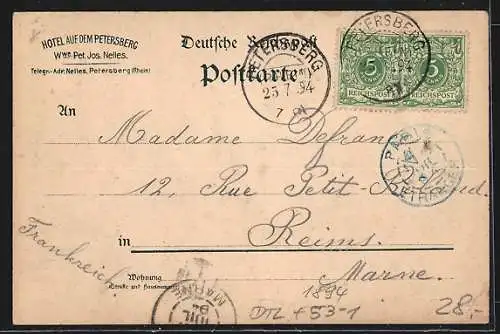 HOTEL AUF DEM PETERSBERG
Wwe. Pet. Jos. Nelles.
Telegr.-Adr. Nelles, Petersberg (Rhein)
Deutsche Reichspost
Postkarte
PETERSBERG
25.7.94
7
PETERSBERG
5 5
REICHSPOST REICHSPOST
An
Madame Defrance
PARIS
ETRANGER
12, Rue Petit-Roland
Frankreich!
in Reims.
Marne.
Wohnung
(Straße und Hausnummer)
MARNE
JUIL
94
1894
DTL + 53-1
28,-